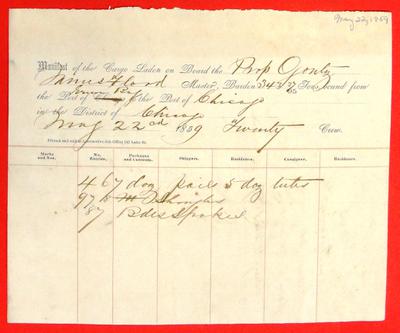 May 22, 1859
Manifest of the Cargo Laden on Board the Prop
James Flood Master, Burden Tons, bound from
the Port of to the Port of Chicago
in the District of Chicago
May 22nd 1859 Twenty Crew.
Marks and Nos. No. Entries. Packages and Contents. Shippers. Residence. Consignee. Residence.
467 doz pails 5 doz tubs
97 M Shingles
87 Bdls Spokes